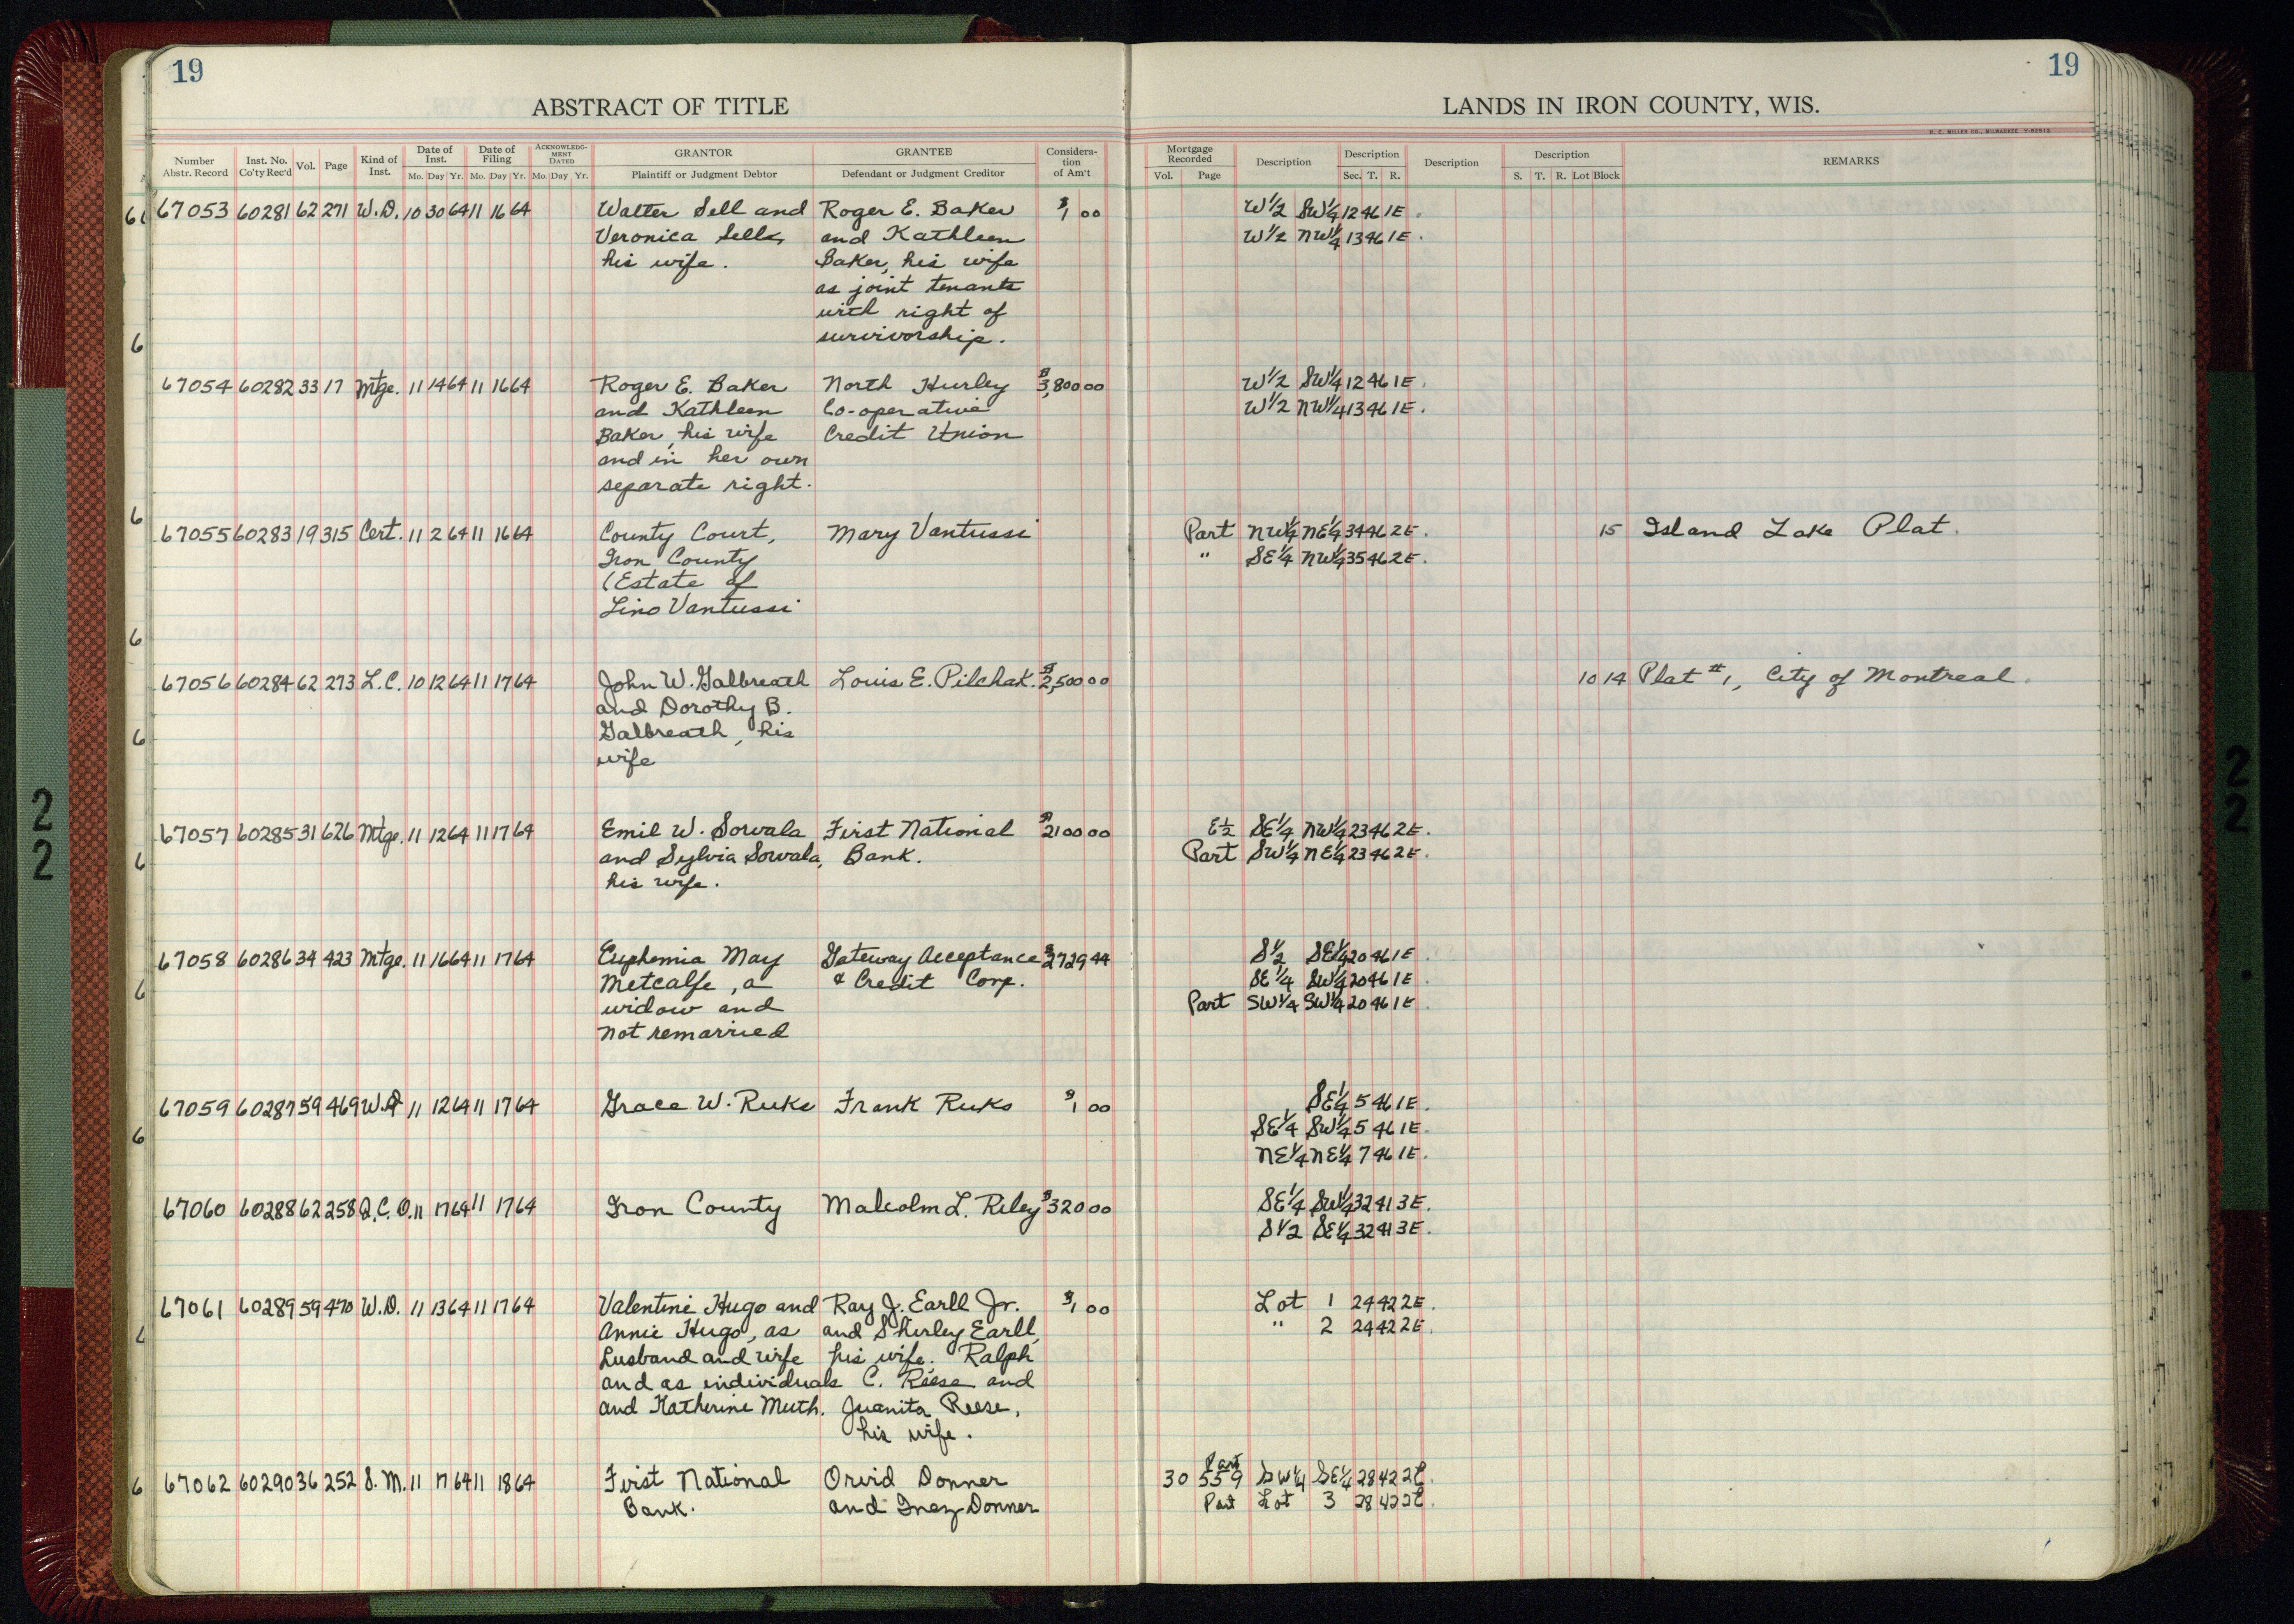 19
19
ABSTRACT OF TITLE
LANDS IN IRON COUNTY, WIS.
H. C. MILLER CO., MILWAUKEE
Number Abstr. Record Inst. No. Co'ty Rec'd Vol. Page Kind of Inst. Date of Inst. Mo. Day Yr. Date of Filing Mo. Day Yr. ACKNOWLEDGMENT DATED Mo. Day Yr. GRANTOR Plaintiff or Judgment Debtor GRANTEE Defendant or Judgment Creditor Considera-tion of Am't Mortgage Recorded Vol. Page Description Description Sec. T. R. Description Description S. T. R. Lot Block REMARKS
67053 60281 62 271 W.D. 10 30 64 11 16 64 Walter Sell and Roger E. Baker $1 00 W1/2 SW1/4 12 46 1E.
Veronica Sell, and Kathleen W1/2 NW1/4 13 46 1E.
his wife. Baker, his wife
as joint tenants
with right of
survivorship.
67054 60282 33 17 Mtge. 11 14 64 11 16 64 Roger E. Baker North Hurley $3,800 00 W1/2 SW1/4 12 46 1E.
and Kathleen Co-operative W1/2 NW1/4 13 46 1E.
Baker, his wife Credit Union
and in her own
separate right.
67055 60283 19 315 Cert. 11 2 64 11 16 64 County Court, Mary Vantussi Part NW1/4 NE1/4 34 46 2E. 15 Island Lake Plat.
Iron County " SE1/4 NW1/4 35 46 2E.
(Estate of
Lino Vantussi
67056 60284 62 273 L.C. 10 12 64 11 17 64 John W. Galbreath Louis E. Pilchak. $2,500 00 10 14 Plat #1, City of Montreal.
and Dorothy B.
Galbreath, his
wife
67057 60285 31 626 Mtge. 11 12 64 11 17 64 Emil W. Sorvala First National $2100 00 E1/2 SE1/4 NW1/4 23 46 2E.
and Sylvia Sorvala, Bank. Part SW1/4 NE1/4 23 46 2E.
his wife.
67058 60286 34 423 Mtge. 11 16 64 11 17 64 Euphemia May Gateway Acceptance $2729 44 S1/2 SE1/4 20 46 1E.
Metcalfe, a & Credit Corp. SE1/4 SW1/4 20 46 1E.
widow and Part SW1/4 SW1/4 20 46 1E.
not remarried
67059 60287 59 469 W.D. 11 12 64 11 17 64 Grace W. Ruke Frank Ruko $1 00 SE1/4 5 46 1E.
SE1/4 SW1/4 5 46 1E.
NE1/4 NE1/4 7 46 1E.
67060 60288 62 258 Q.C.D. 11 17 64 11 17 64 Iron County Malcolm L. Riley $320 00 SE1/4 SW1/4 32 41 3E.
S1/2 SE1/4 32 41 3E.
67061 60289 59 470 W.D. 11 13 64 11 17 64 Valentine Hugo and Ray J. Earll Jr. $1 00 Lot 1 24 42 2E.
Annie Hugo, as and Shirley Earll, " 2 24 42 2E.
husband and wife his wife. Ralph
and as individuals C. Reese and
and Katherine Muth. Juanita Reese,
his wife.
67062 60290 36 252 S.M. 11 17 64 11 18 64 First National Orvid Donner 30 559 Part SW1/4 SE1/4 28 42 2E.
Bank. and Inez Donner Part Lot 3 28 42 2E.
22
22